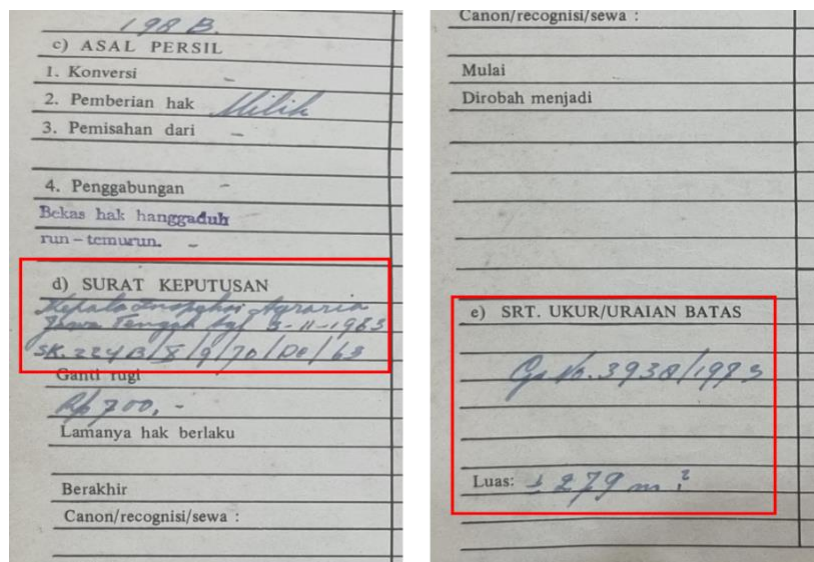 198 B.
c) ASAL PERSIL
1. Konversi -
2. Pemberian hak Milik
3. Pemisahan dari -
4. Penggabungan -
Bekas hak hanggaduh
run-temurun. -
d) SURAT KEPUTUSAN
Kepala Inspeksi Agraria
Jawa Tengah tgl 9-11-1963
SK. 224B/X/9/70/De/63
Ganti rugi
Rp 700,-
Lamanya hak berlaku
Berakhir
Canon/recognisi/sewa :
Canon/recognisi/sewa :
Mulai
Dirobah menjadi
e) SRT. UKUR/URAIAN BATAS
Gs No. 3938/1983
Luas: ± 279 m²